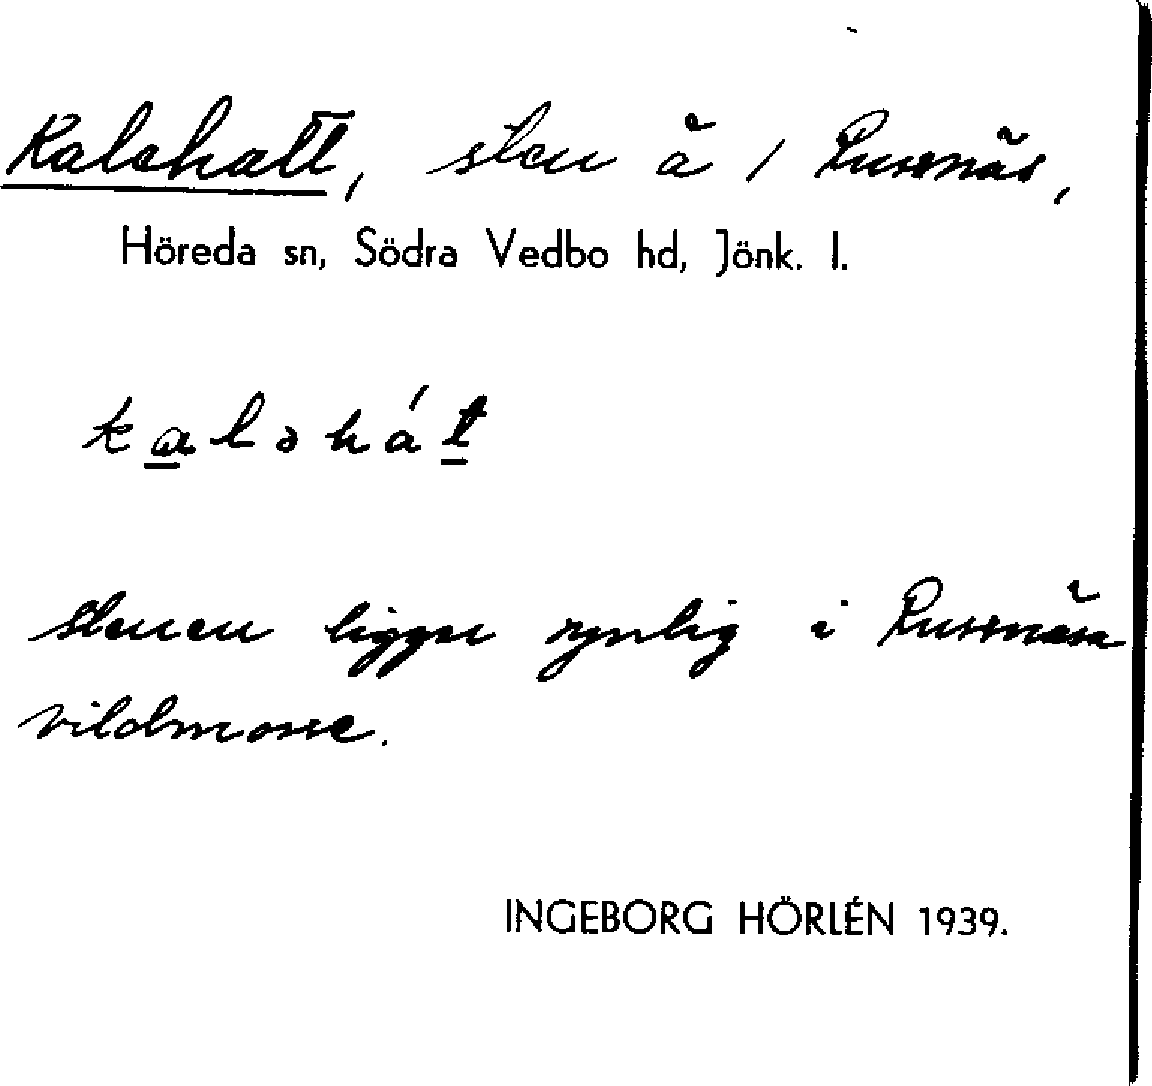 Kalehatt, sten å / Russnäs,
Höreda sn, Södra Vedbo hd, Jönk. l.
kaləhát
stenen ligger synlig i Russnäsa
vildmosse.
INGEBORG HÖRLÉN 1939.